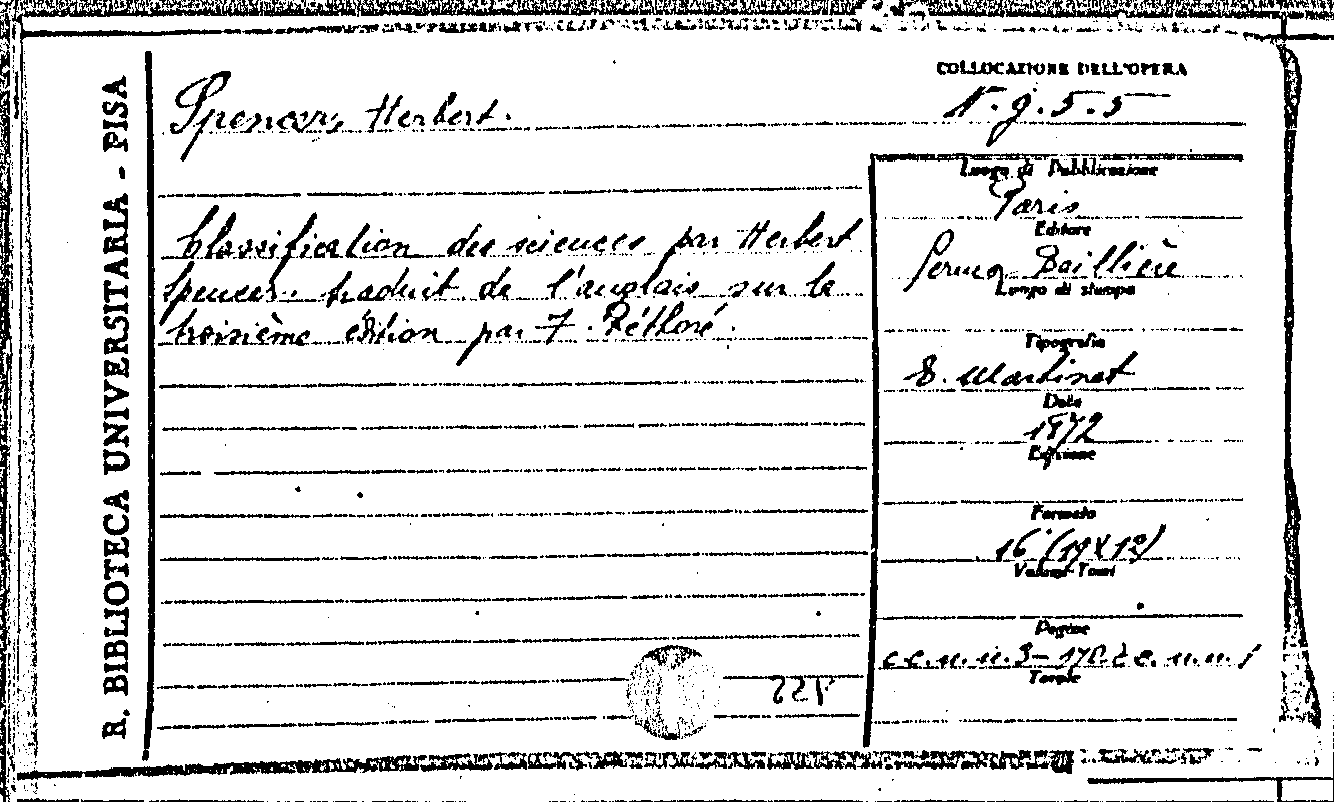 R. BIBLIOTECA UNIVERSITARIA - PISA
COLLOCAZIONE DELL'OPERA
Spencer, Herbert.
N. g. 5. 5
Luogo di Pubblicazione
Paris
Classification des sciences par Herbert
Spencer. traduit de l'anglais sur la
troisième édition par F. Réthoré.
Editore
Germer Baillière
Luogo di stampa
Tipografia
E. Martinet
Data
1872
Edizione
Formato
16° (19 X 12)
Volumi-Tomi
Pagine
c.c.n.n. 3-170
Tavole